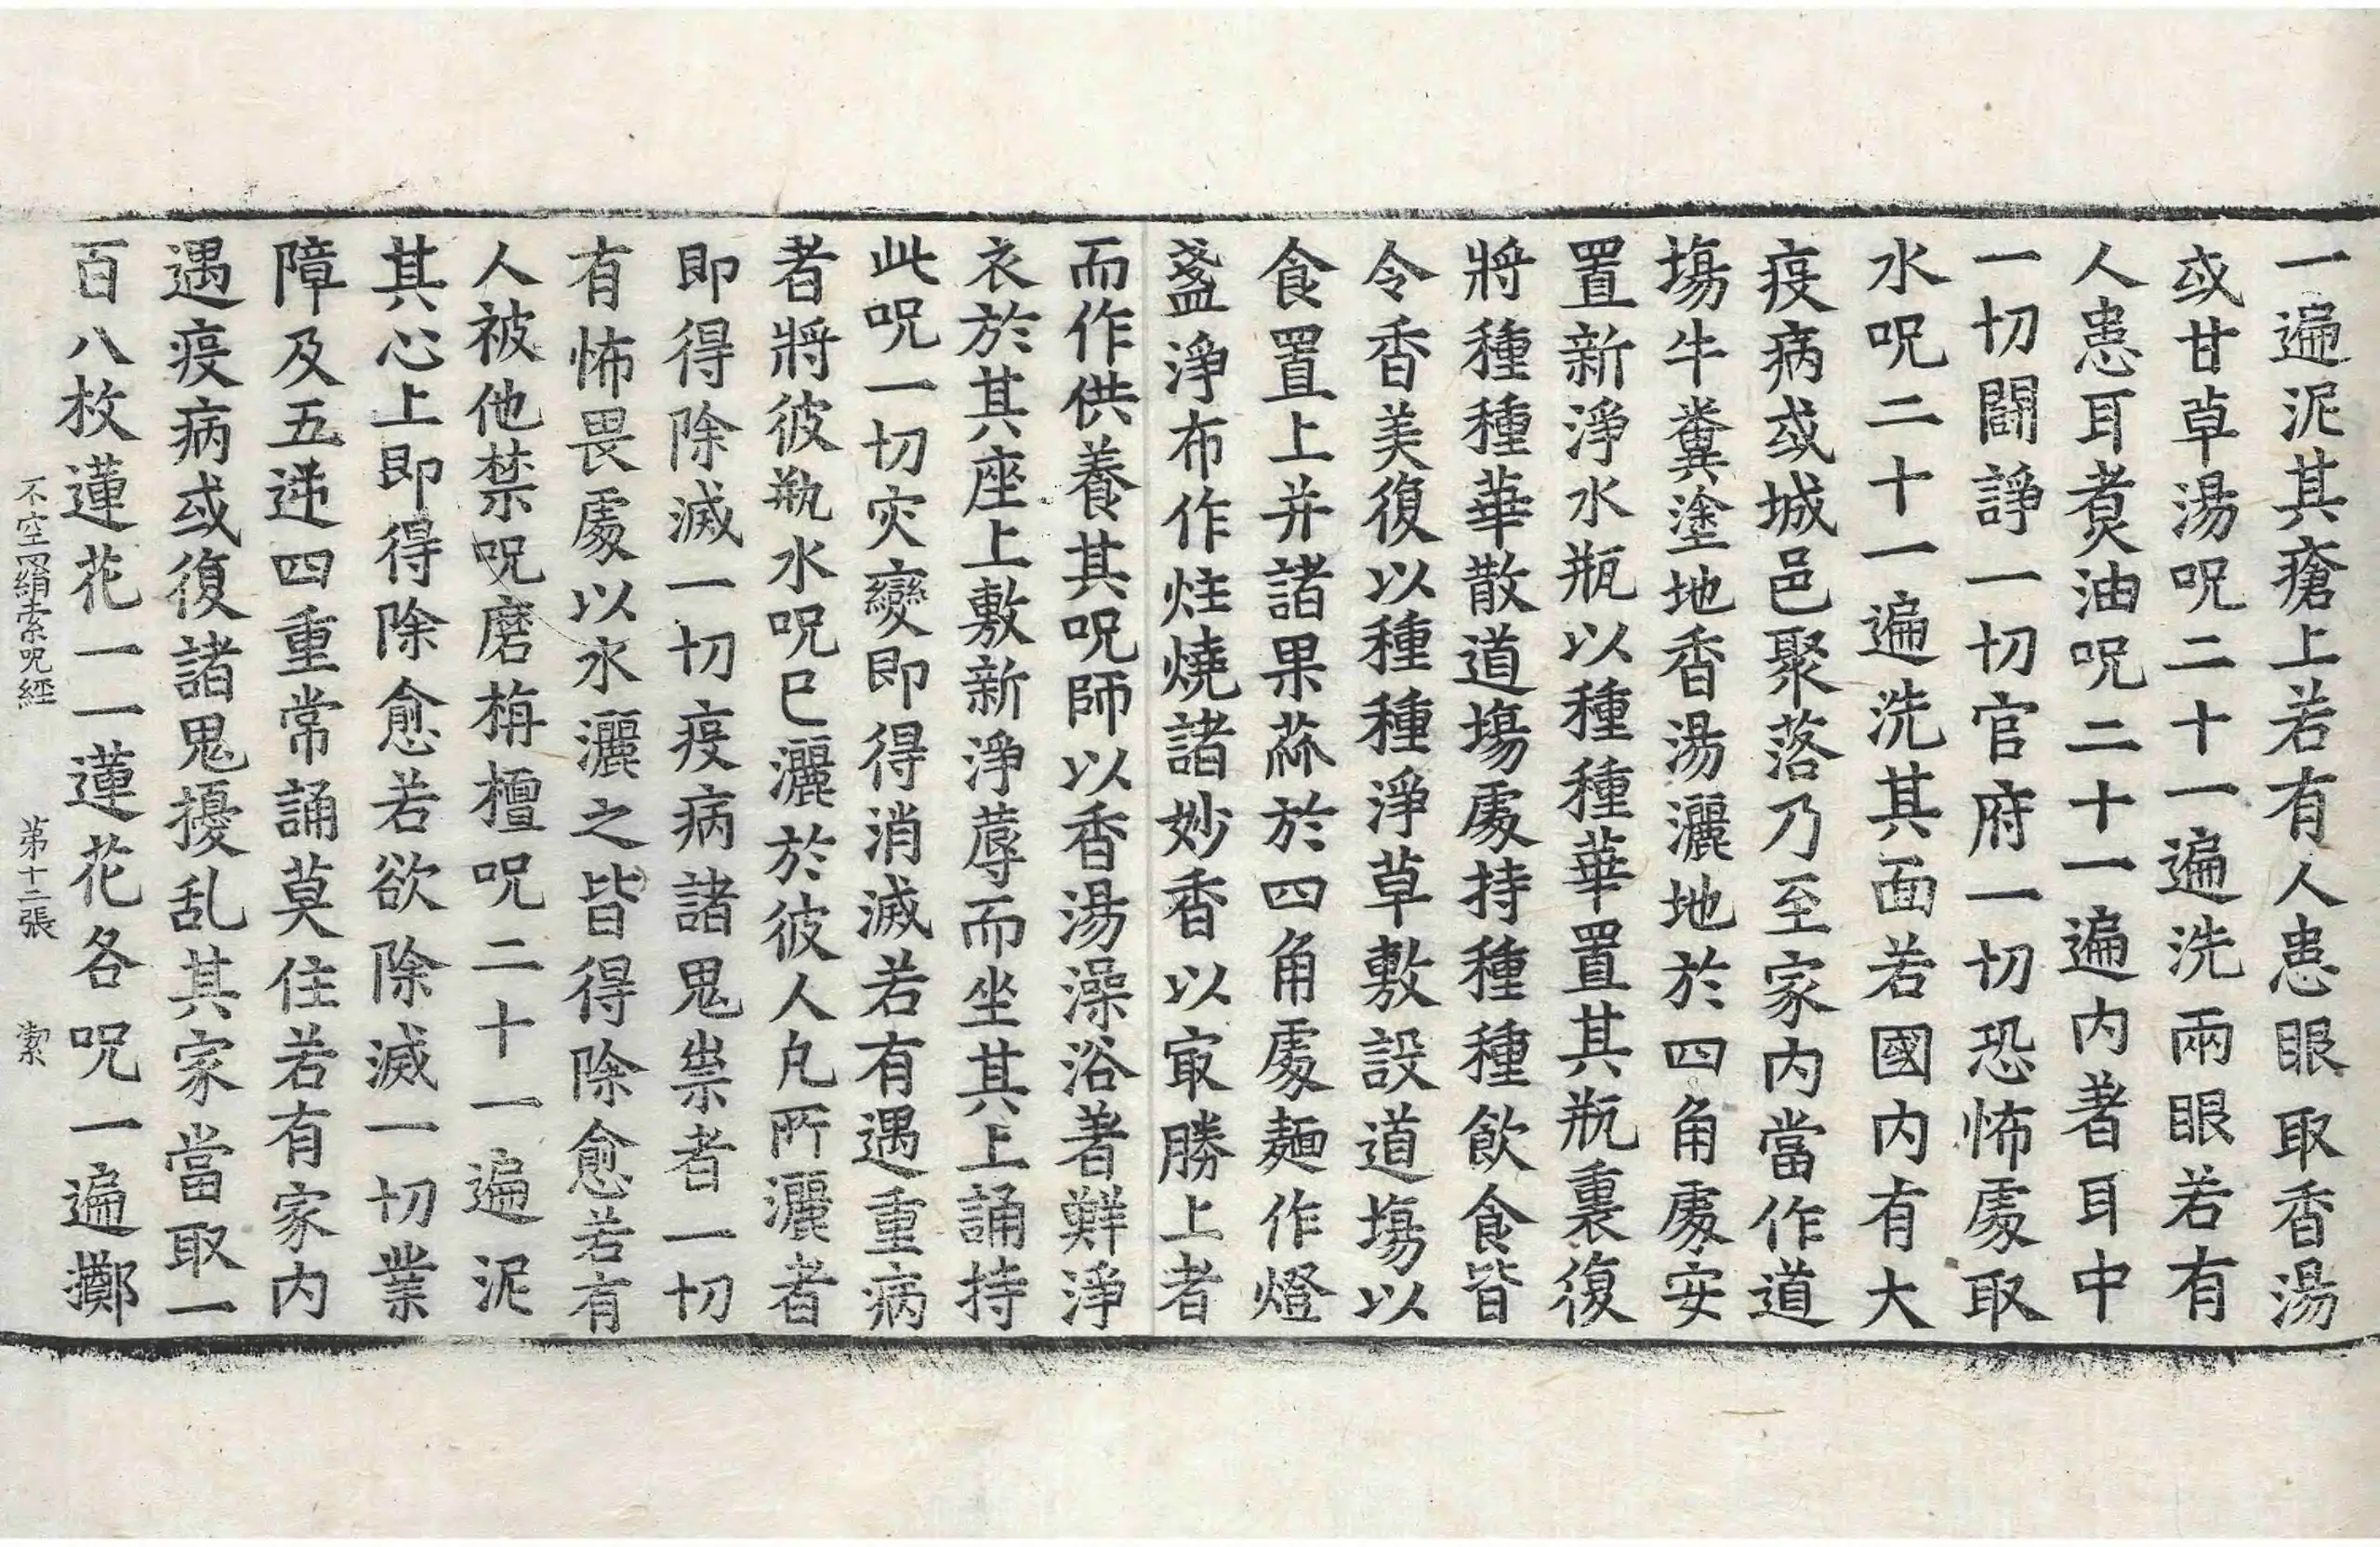 一遍泥其瘡上若有人患眼取香湯
或甘草湯呪二十一遍洗兩眼若有
人患耳煑油呪二十一遍内著耳中
一切鬪諍一切官府一切恐怖處取
水呪二十一遍洗其面若國内有大
疫病或城邑聚落乃至家内當作道
塲牛糞塗地香湯灑地於四角處安
置新淨水瓶以種種華置其瓶裏復
將種種華散道塲處持種種飲食皆
令香美復以種種淨草敷設道塲以
食置上并諸果蓏於四角處麺作燈
盞淨布作炷燒諸妙香以㝡勝上者
而作供養其呪師以香湯澡浴著鮮淨
衣於其座上敷新淨蓐而坐其上誦持
此呪一切灾變即得消滅若有遇重病
者將彼瓶水呪已灑於彼人凡所灑者
即得除滅一切疫病諸鬼祟者一切
有怖畏處以水灑之皆得除愈若有
人被他禁呪磨栴檀呪二十一遍泥
其心上即得除愈若欲除滅一切業
障及五逆四重常誦莫住若有家内
遇疫病或復諸鬼擾乱其家當取一
百八枚蓮花一一蓮花各呪一遍擲
不空罥索呪經 第十二張 潔